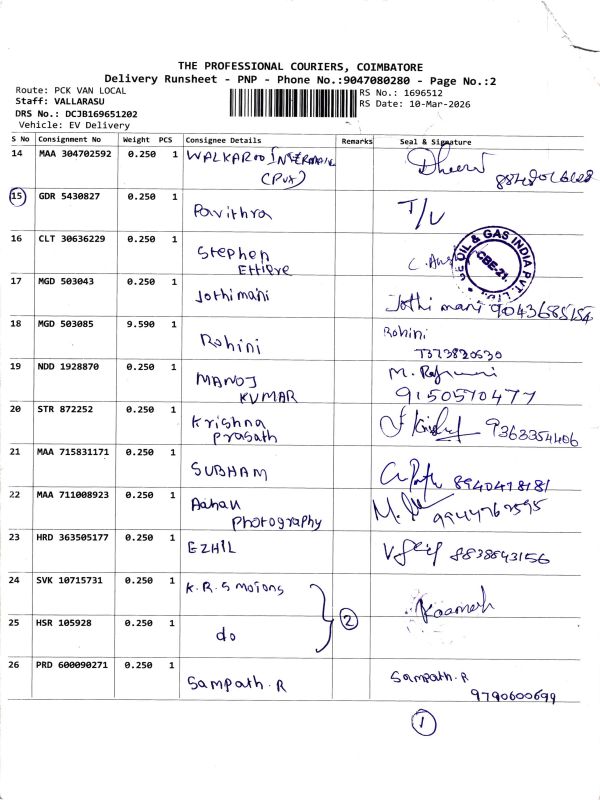 THE PROFESSIONAL COURIERS, COIMBATORE
Delivery Runsheet - PNP - Phone No.:9047080280 - Page No.:2
Route: PCK VAN LOCAL
Staff: VALLARASU
DRS No.: DCJB169651202
Vehicle: EV Delivery
RS No.: 1696512
RS Date: 10-Mar-2026
S No Consignment No Weight PCS Consignee Details Remarks Seal & Signature
14 MAA 304702592 0.250 1 WALKAROO
(PUX)
15 GDR 5430827 0.250 1 Pavithra T/L
16 CLT 30636229 0.250 1 Stephen
Ettiere
OIL & GAS INDIA PVT. LTD
CBE-21.
17 MGD 503043 0.250 1 Jothimani Jothi mani 9043685154
18 MGD 503085 9.590 1 Rohini Rohini
7373820630
19 NDD 1928870 0.250 1 MANOJ
KUMAR
9150570477
20 STR 872252 0.250 1 Krishna
Prasath
9363354406
21 MAA 715831171 0.250 1 SUBHAM 8940478181
22 MAA 711008923 0.250 1 Aahan
Photography
9944767595
23 HRD 363505177 0.250 1 EZHIL 8838643156
24 SVK 10715731 0.250 1 K.R.S motors
25 HSR 105928 0.250 1 do 2
26 PRD 600090271 0.250 1 Sampath.R Sampath.R
9790600699
1